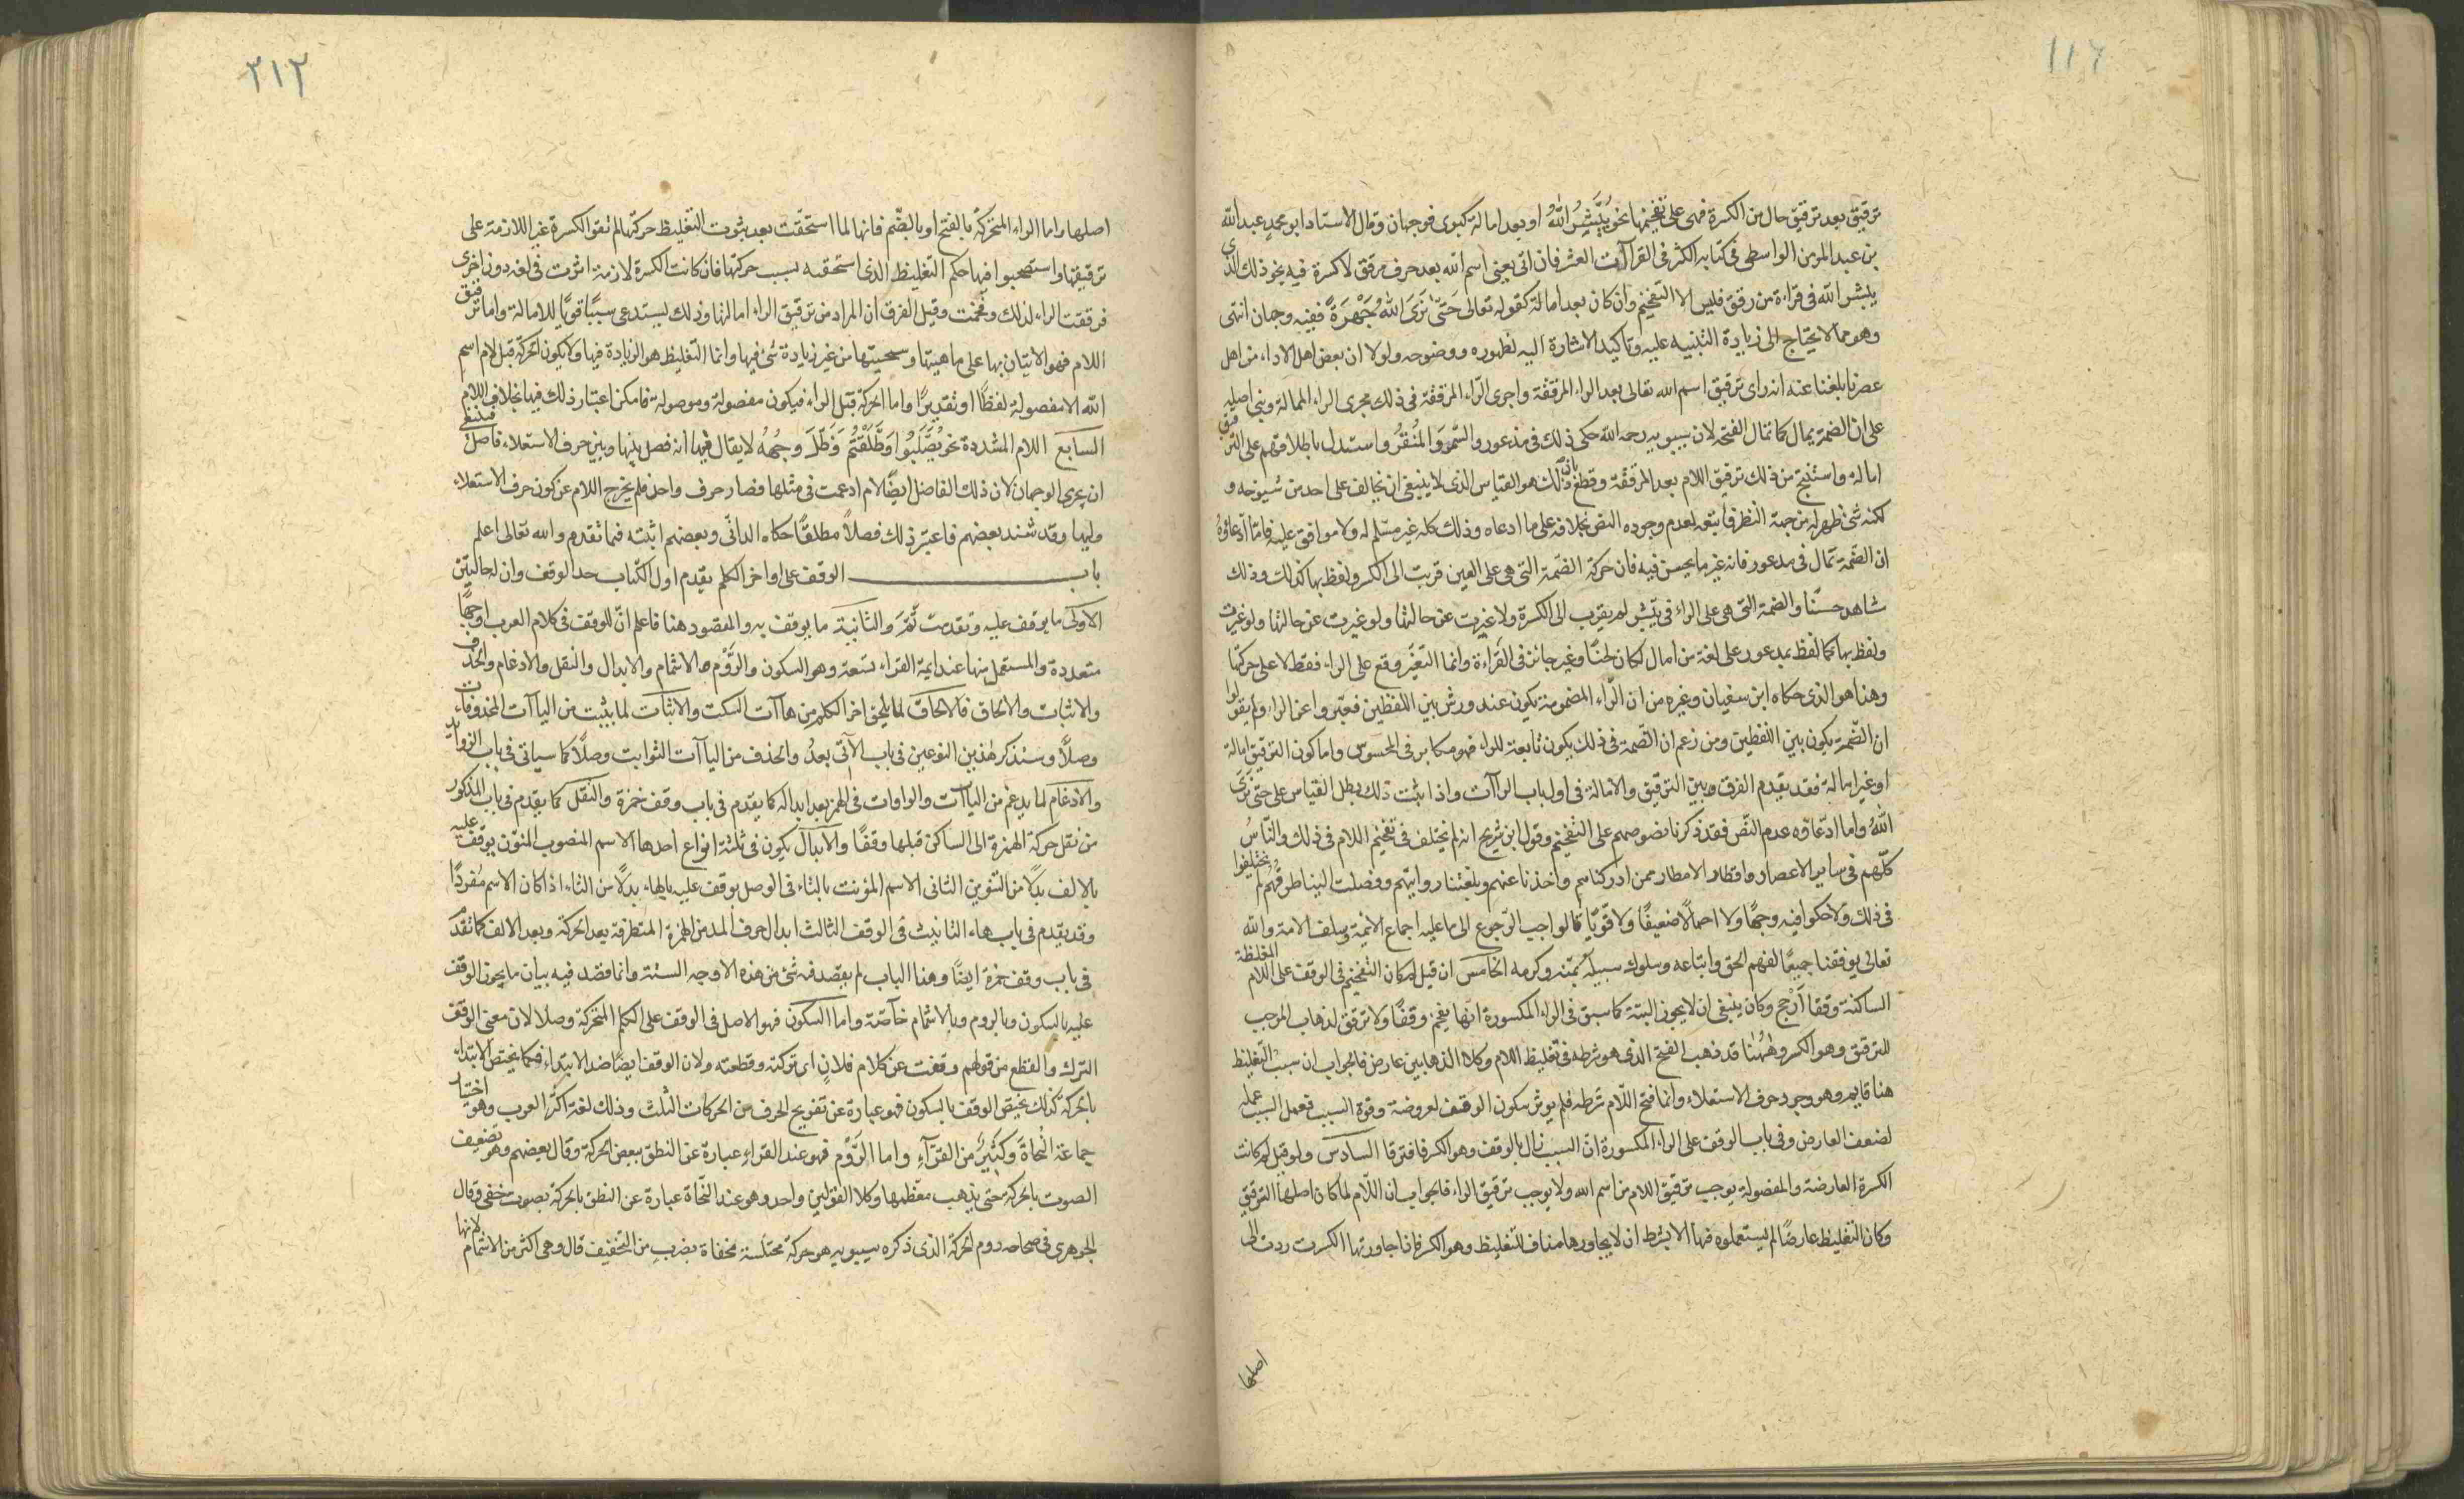 ١١٢
ترقيق بعد ترقيق حال من الكسرة فهى على تفخيمها نحو يُبَشِّرُ اللّٰهُ او بعد امالة كبرى فوجهان وقال الاستاد ابو محمد عبد الله
بن عبد المومن الواسطى فى كتابه الكنز فى القراآت العشر فان اتى يعنى اسم الله بعد حرف مرقق لا كسرة فيه نحو ذلك الذى
يبشر الله فى قراءة من رقق فليس الا التفخيم وان كان بعد امالة كقوله تعالى حَتّٰى نَرَى اللّٰهَ جَهْرَةً ففيه وجهان انتهى
وهو مما لا يحتاج الى زيادة التنبيه عليه وتاكيد الاشارة اليه لظهوره ووضوحه ولولا ان بعض اهل الاداء من اهل
عصرنا بلغنا عنه انه راى ترقيق اسم الله تعالى بعد الراء المرققة واجرى الرّاء المرققة فى ذلك مجرى الراء الممالة وبنى اصله
على ان الضمة يمال كما تمال الفتحة لان سيبويه رحمه الله حكى ذلك فى مذعور والسَّمُر والمُنقُر واستدل باطلاقهم على الترقيق
امالة واستنتج من ذلك ترقيق اللام بعد المرققة وقطع بان ذلك هو القياس الذى لا ينبغى ان يخالف على احد من شيوخه و
لكنه شئ ظهر له من جهة النظر فاتبعه لعدم وجوده النص بخلافه على ما ادعاه وذلك كله غير مسَلّم له ولا موافق عليه فامّا ادّعاؤهُ
ان الضّمة تمال فى مدعور فانه غير ما يحسن فيه فان حركة الضمّة التى هى على العين قربت الى الكسر ولفظ بها كذلك وذلك
شاهد حسّنا والضمة التى هى على الراء فى يبَشر لم يقرب الى الكسرة ولا غيرت عن حالتها ولو غيرت عن حالتها ولو غيرت
ولفظ بها كما لفظ بمدعور على لغة من امال لكان لحنًا وغير جائز فى القراءة وانما التغيّر وقع على الراء فقط لا على حركتها
وهذا هو الذى حكاه ابن سفيان وغيره من ان الرّاء المضمومة يكون عند ورش بين اللفظين فعبّروا عن الراء ولم يقولوا
ان الضّمة يكون بين اللفظين ومن زعم ان الضّمة فى ذلك يكون تابعة للراء فهو مكابر فى المحسوس واما كون الترقيق امالة
او غير امالة فقد يقدم الفرق وبين الترقيق والامالة فى اول باب الراآت واذا ثبت ذلك بطل القياس على حتى نَرَى
اللّٰهَ واما ادّعاؤه عدم النّص فقد ذكرنا نصوصهم على التفخيم وقول ابن شُريح انه لم يختلف فى تفخيم اللام فى ذلك والنّاسُ
كلّهم فى ساير الاعصار واقطار الامطار ممن ادركناهم واخذنا عنهم وبلغتنا روايتهم ووصلت الينا طرقهُم لم يختلفوا
فى ذلك ولا حكوا فيه وجهًا ولا احمالًا ضعيفًا ولا قوّيًا فالواجب الرّجوع الى ما عليه اجماع الائمة وسلف الامة والله
تعالى يوفقنا جميعًا لفهم الحق واتباعه وسلوك سبيله بمنّه وكرمه الخامس ان قيل لم كان التفخيم فى الوقف على اللام المغلظة
الساكنة وقفا ارْجح وكان ينبغى ان لا يجوز البتة كما سبق فى الراء المكسورة انّها يفخم وقفًا ولا ترقق لذهاب الموجب
للترقيق وهو الكسر وهٰهُنا قد ذهب الفتح الذى هو شرطه فى تغليظ اللام وكلا الذهابين عارض فالجواب ان سبب التغليظ
هنا قايم وهو وجود حرف الاستعلاء وانما فتح اللّام شرطه فلم يوثر سكون الوقف لعروضة وقوة السبب فعمل السبب عمله
لضعف العارض وفى باب الوقف على الراء المكسورة انّ السبب زال بالوقف وهو الكسر فافترقا السادس ولو قيل لم كانت
الكسرة العارضة والمفصولة يوجب ترقيق اللام من اسم الله ولا يوجب ترقيق الراء فالجواب ان اللّام لما كان اصلها الترقيق
وكان التغليظ عارضًا لم يستعملوه فيها الا بشرط ان لا يجاورها مناف للتغليظ وهو الكسر فاذا جاورتها الكسرت ردت الى
اصلها
٢١٢
اصلها واما الراء المتحركة بالفتح او بالضّم فانها لما استحقّت بعد ثبوت التغليظ حركتها لم تقو الكسرة غير اللازمة على
ترقيقها واستصحبوا فيها حكم التغليظ الذى استحقه بسبب حركتها فان كانت الكسرة لازمة اثرت فى لغة دون اخرى
فرققت الراء لذلك وفخمت وقيل الفرق ان المراد من ترقيق الراء امالتها وذلك يستدعى سببًا قويًا للامالة واما ترقيق
اللام فهو الاتيان بها على ماهيتها وسجيتها من غير زيادة شئ فيها وانما التغليظ هو الزيادة فيها ولا يكون الحركة قبل لام اسم
الله الا مفصولة لفظًا او تقديرًا واما الحركة قبل الراء فيكون مفصولة وموصولة فامكن اعتبار ذلك فيها بخلاف اللام
السابع اللام المشددة نحو يُصَّلَبُوا وَطَّلَقْتُمُ وَظَّلَ وجهُهُ لا يقال فيها انه فصل بينها وبين حرف الاستعلاء فاصل فينبغى
ان يجرى الوجهان لان ذلك الفاصل ايضًا لام ادغمت فى مثلها فصار حرف واحد فلم يخرج اللام عن كون حرف الاستعلاء
وليها وقد شذ بعضهم فاعتبر ذلك فصلًا مطلقًا حكاه الدانى وبعضهم اثبته فيما تقدم والله تعالى اعلم
باب الوقف على اواخر الكلم يقدم اول الكتاب حد الوقف وان له حالتين
الاولى ما يوقف عليه وتقدمت ثَمَّرَ والثانية ما يوقف به والمقصود هنا فاعلم انّ للوقف فى كلام العرب اوجهًا
متعددة والمستعمل منها عند ايمة القراء تسعة وهو السكون والرَّوْم والاشمام والابدال والنقل والادغام والحذف
والاثبات والالحاق فالالحاق لما يلحق اخر الكلم من هاآت السكت والاثبات لما يثبت من الياآت المحذوفات
وصلًا وسنذكر هٰذين النوعين فى باب الآتى بعدُ والحذف من الياآت الثوابت وصلًا كما سياتى فى باب الزوايد
والادغام لما يدغم من الياآت والواوات فى الهمز بعد ابداله كما يقدم فى باب وقف حمزة والنقل كما يقدم فى باب المذكور
من نقل حركة الهمزة الى الساكن قبلها وقفًا والابدال يكون فى ثلثة انواع احدها الاسم المنصوب المنوّن يوقف عليه
بالالف بدلًا من التنوين الثانى الاسم المؤنث بالتاء فى الوصل يوقف عليه بالهاء بدلًا من التاء اذا كان الاسم مُفردًا
وقد يقدم فى باب هاء التانيث فى الوقف الثالث ابدال حرف المد من الهمزة المتطرفة بعد الحركة وبعد الالف كما تقدّم
فى باب وقف حمزة ايضًا وهذا الباب لم يقصد فه شئ من هذه الاوجه الستة وانما قصد فيه بيان ما يجوز الوقف
عليه بالسكون وبالروم وبالاشمام خاصّة واما السكون فهو الاصل فى الوقف على الكلم المتحركة وصلا لان معنى الوقف
الترك والقطع من قولهم وقفت عن كلام فلانٍ اى تركته وقطعته ولان الوقف ايضًا ضد الابتداء فكما يختص الابتداء
بالحركة كذلك يختص الوقف بالسكون فهو عبارة عن تفريج الحرف من الحركات الثلث وذلك لغة اكثر العرب وهو اختيار
جماعة النحاةَ وكَثيرٌ من القرّآءِ واما الرَّوْم فهو عند القراءِ عبارة عن النطق ببعض الحركة وقال بعضهم وهو تضعيف
الصوت بالحركة حتى يذهب معَظمها وكلا القولين واحد وهو عند النّحاة عبارة عن النطق بالحركة بصوت خفى وقال
الجوهرى فى صحاحه روم الحركة الذى ذكره سيبويه هو حركة مختلسة مخفاة بضربِ من التخفيف قال وهى اكثر من الاشمام لانها